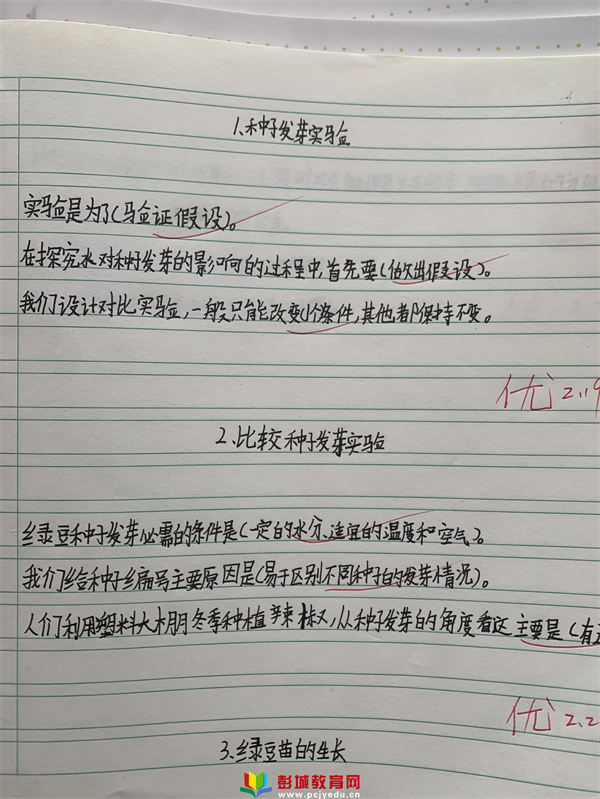 1、种子发芽实验
实验是为了(验证假设)。
在探究水对种子发芽的影响的过程中,首先要(做出假设)。
我们设计对比实验,一般只能改变1个条件,其他都保持不变。
优 2.19
2、比较种子发芽实验
绿豆种子发芽必需的条件是(一定的水分、适宜的温度和空气)。
我们给种子编号主要原因是(易于区别不同种子的发芽情况)。
人们利用塑料大棚冬季种植辣椒,从种子发芽的角度看这主要是(有
优 2.2
3、绿豆苗的生长
彭城教育网
www.pcjyedu.cn